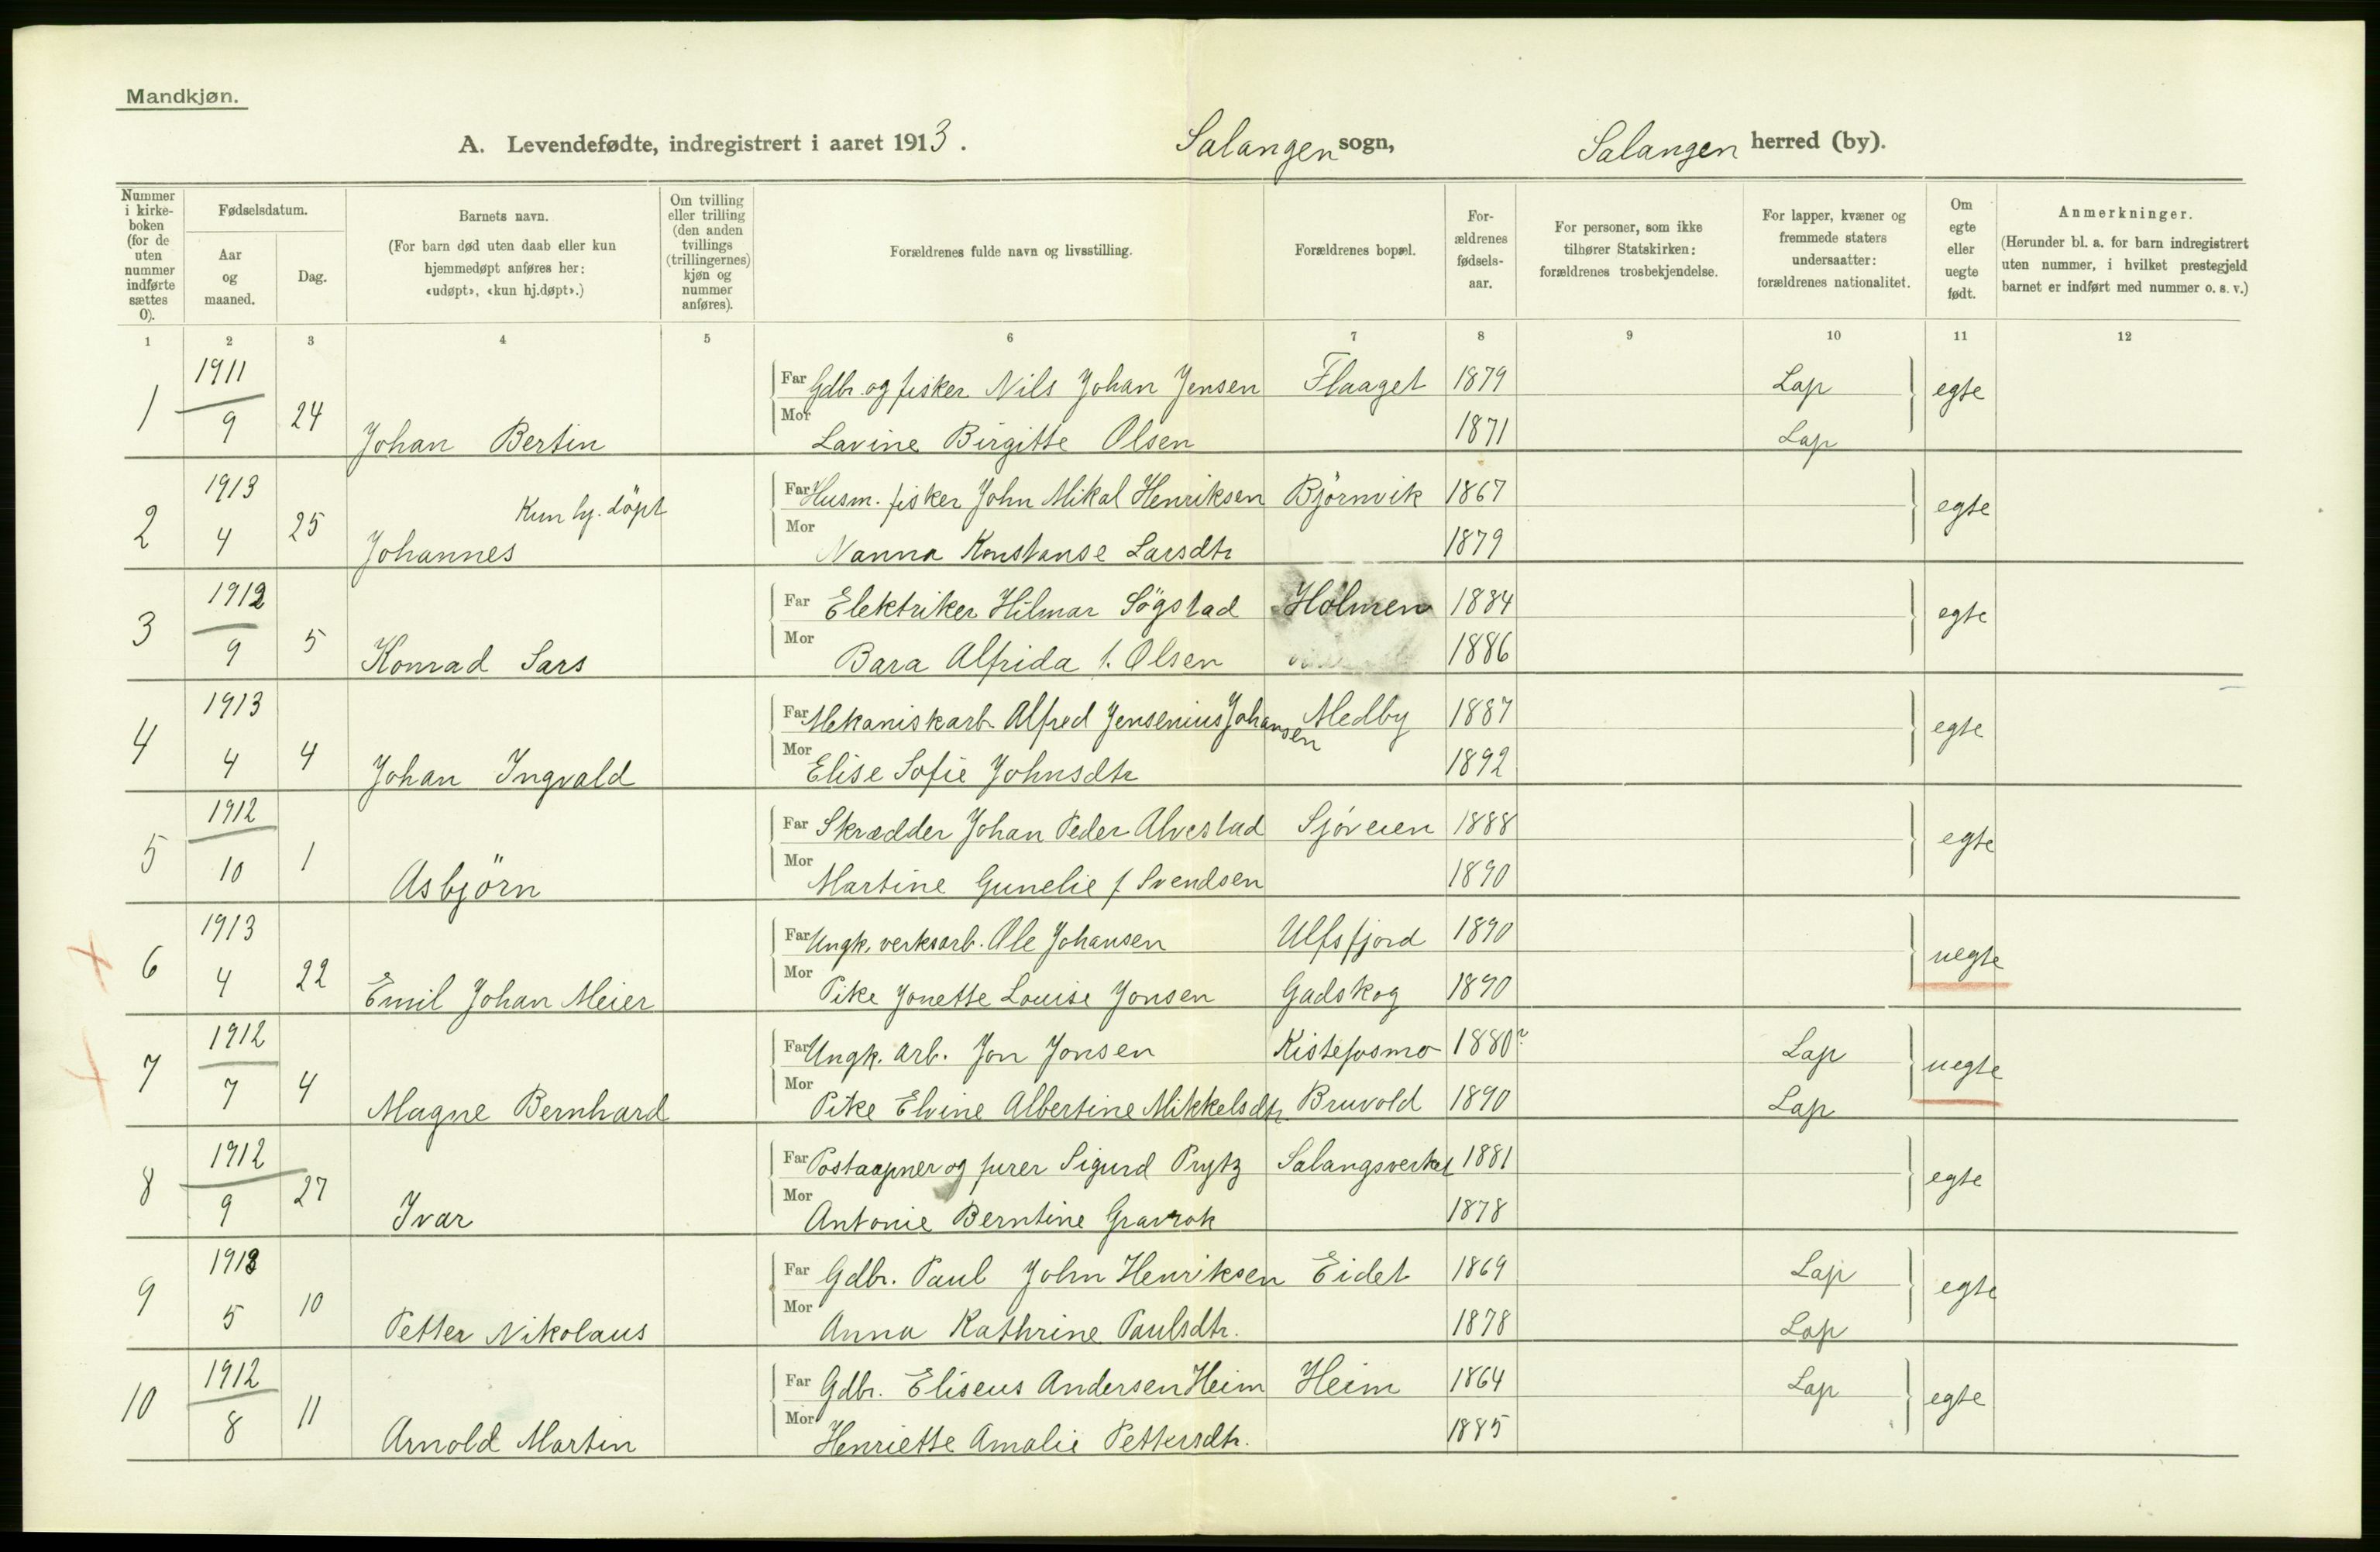 Mandkjøn.
A. Levendefødte, indregistrert i aaret 1913. Salangen sogn, Salangen herred (by).
Nummer i kirke-boken (for de uten nummer indførte sættes 0).
Fødselsdatum.
Aar og maaned.
Dag.
Barnets navn.
(For barn død uten daab eller kun hjemmedøpt anføres her: «udøpt», «kun hj.døpt».)
Om tvilling eller trilling (den anden tvillings (trillingernes) kjøn og nummer anføres).
Forældrenes fulde navn og livsstilling.
Forældrenes bopæl.
For-ældrenes fødsels-aar.
For personer, som ikke tilhører Statskirken: forældrenes trosbekjendelse.
For lapper, kvæner og fremmede staters undersaatter: forældrenes nationalitet.
Om egte eller uegte født.
Anmerkninger.
(Herunder bl. a. for barn indregistrert uten nummer, i hvilket prestegjeld barnet er indført med nummer o. s. v.)
1 2 3 4 5 6 7 8 9 10 11 12
1 1911 9 24 Johan Bertin
Far Gdbr. og fisker Nils Johan Jensen Flaaget 1879 Lap egte
Mor Lavine Birgitte Olsen 1871 Lap
2 1913 4 25 Johannes Kun hj. döpt
Far Husm. fisker John Mikal Henriksen Björnvik 1867 egte
Mor Nanna Konstanse Larsdtr 1879
3 1912 9 5 Konrad Sars
Far Elektriker Hilmar Sögstad Holmen 1884 egte
Mor Bara Alfrida f. Olsen 1886
4 1913 4 4 Johan Ingvald
Far Mekaniskarb. Alfred Jensenius Johansen Medby 1887 egte
Mor Elise Sofie Johnsdtr 1892
5 1912 10 1 Asbjörn
Far Skrædder Johan Peder Alvestad Sjöveien 1888 egte
Mor Martine Gunelie f Svendsen 1890
6 1913 4 22 Emil Johan Meier
Far Ungk. verksarb. Ole Johansen Ulfsfjord 1890 uegte
Mor Pike Jonette Louise Jonsen Gadskog 1890
7 1912 7 4 Magne Bernhard
Far Ungk. arb. Jon Jonsen Kistefosmo 1880? Lap uegte
Mor Pike Elvine Albertine Mikkelsdtr. Bruvold 1890 Lap
8 1912 9 27 Ivar
Far Postaapner og furer Sigurd Prytz Salangsverket 1881 egte
Mor Antonie Berntine Gravrok 1878
9 1913 5 10 Petter Nikolaus
Far Gdbr. Paul John Henriksen Eidet 1869 Lap egte
Mor Anna Kathrine Paulsdtr. 1878 Lap
10 1912 8 11 Arnold Martin
Far Gdbr. Eliseus Andersen Heim Heim 1864 Lap egte
Mor Henriette Amalie Pettersdtr. 1885